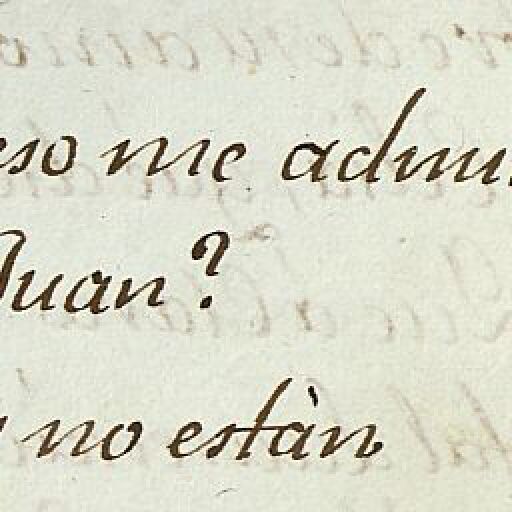 eso me admi
Juan?
no estàn